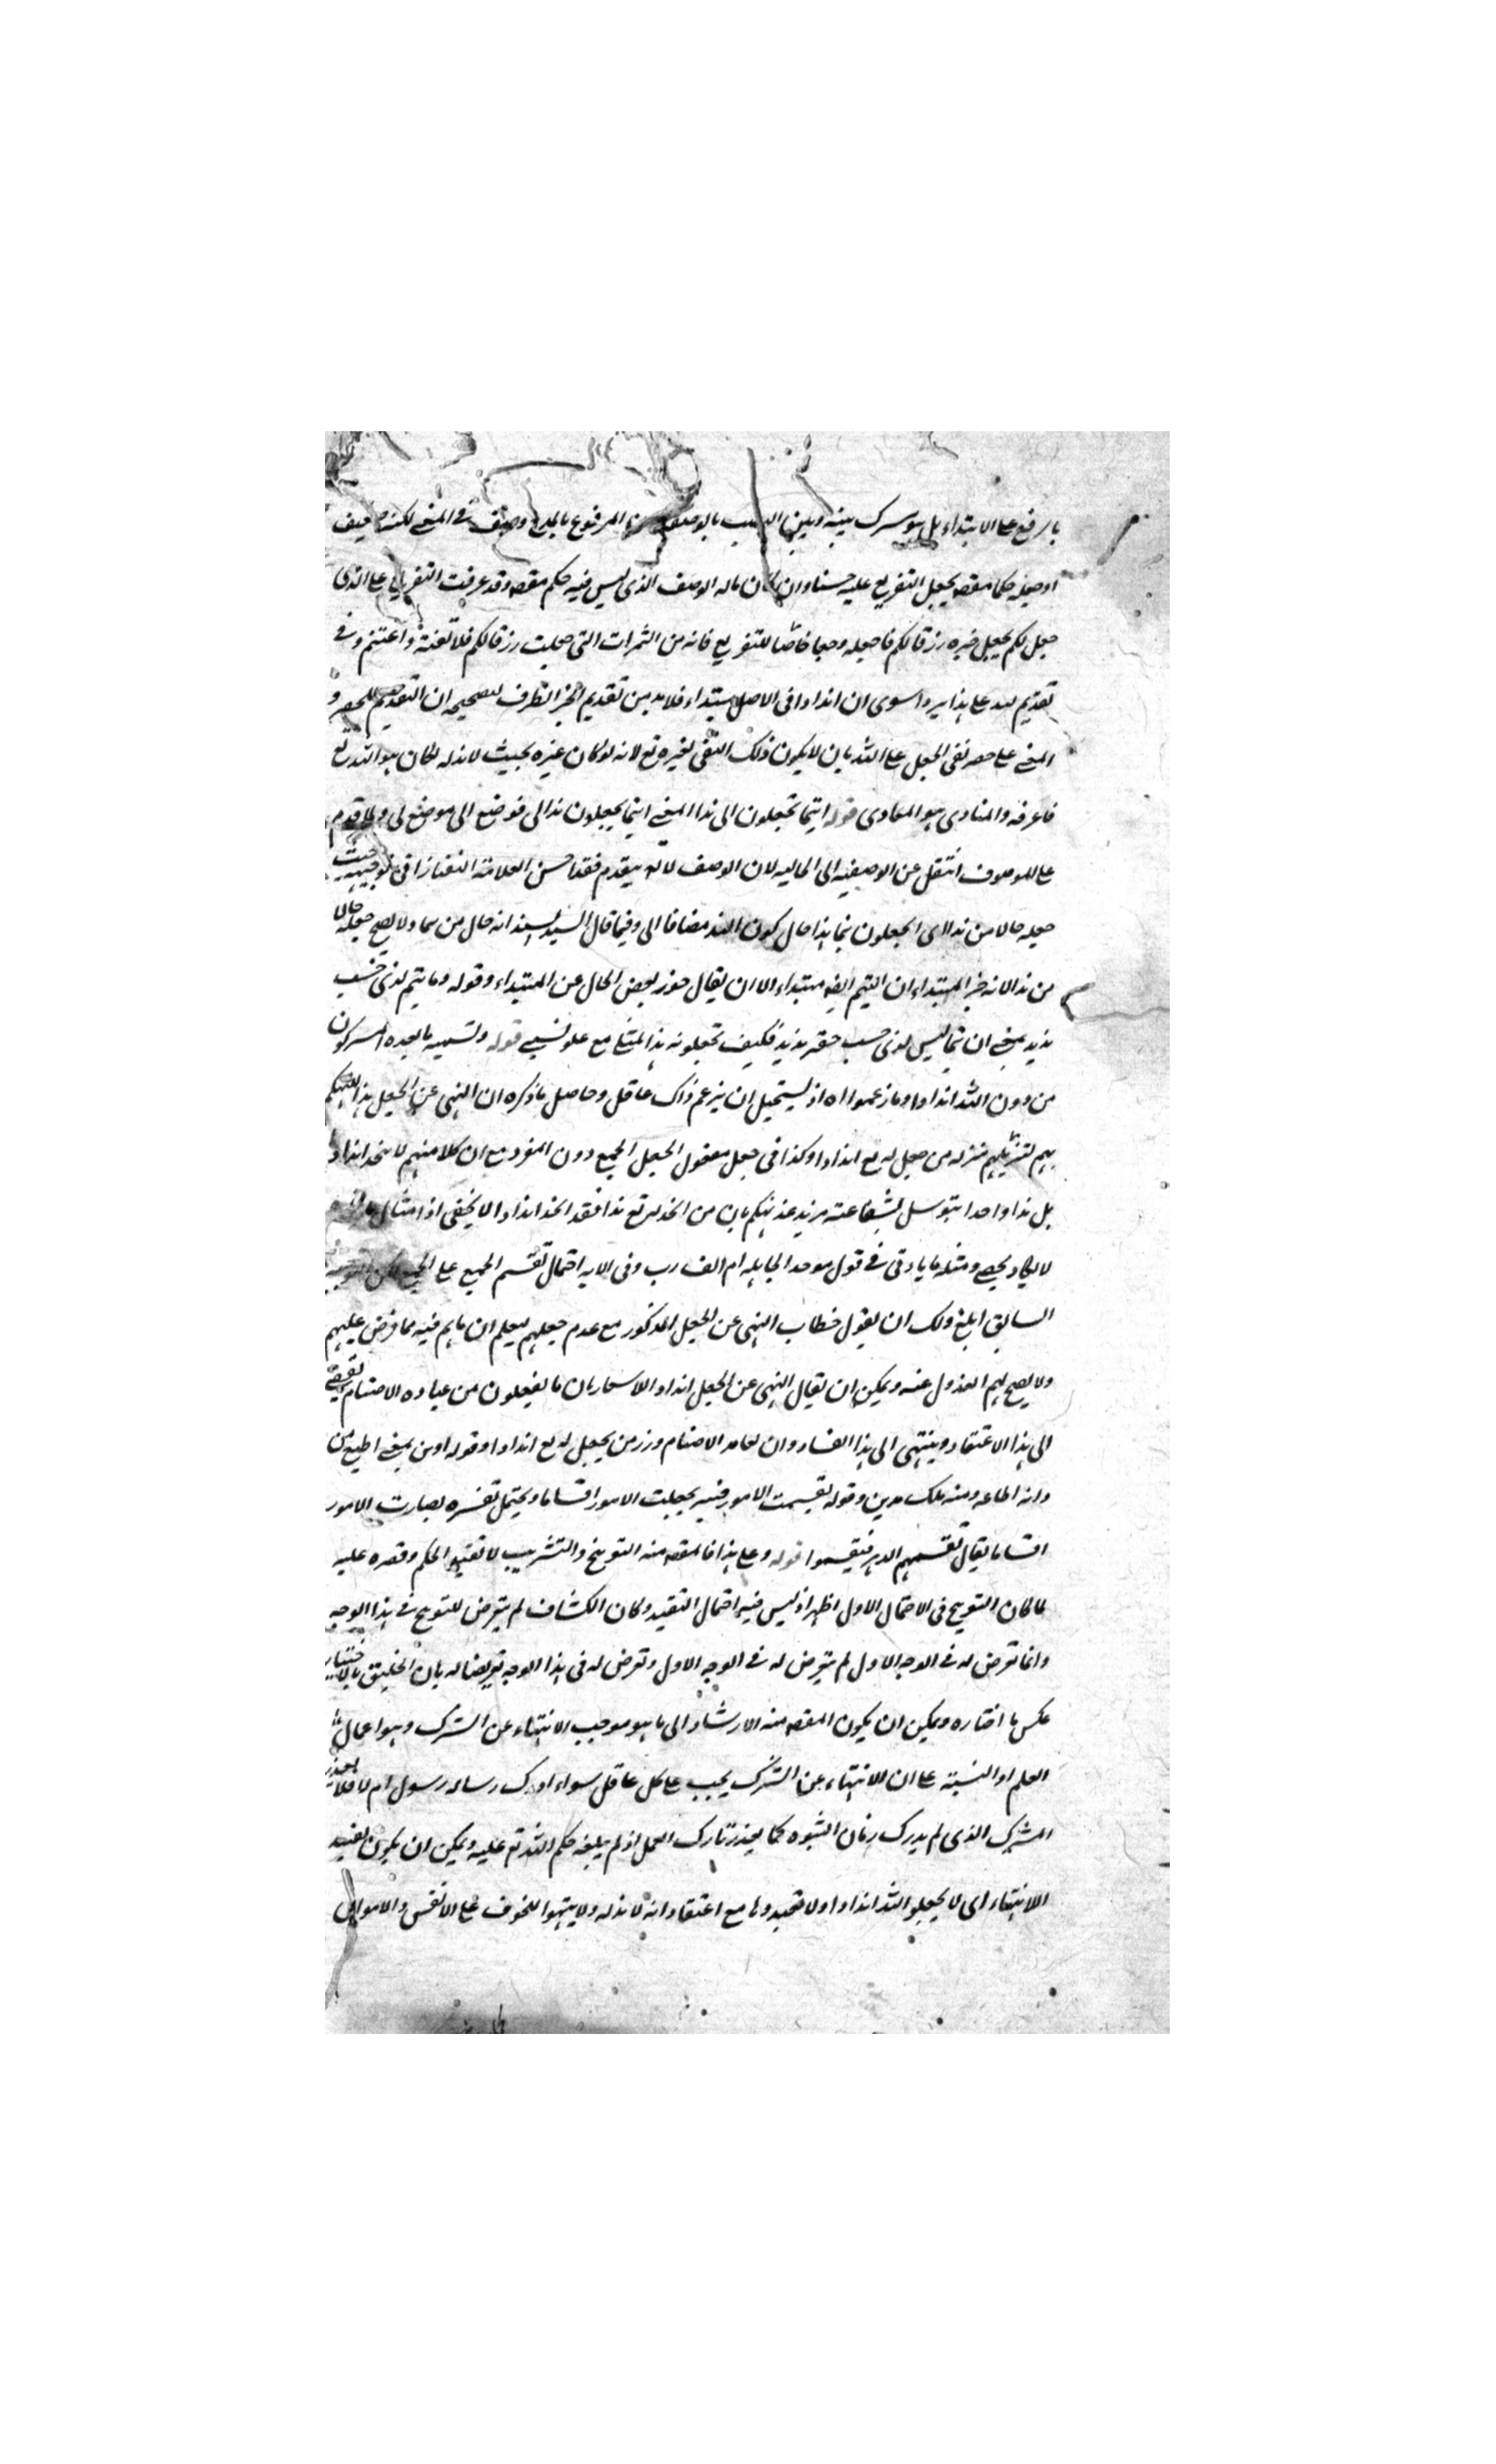 بالرفع على الابتداء بل هو مشرك بينه وبين بالوصف المرفوع بالمدح وصف في المعنى لكنه
او صله حكما مقصا يجعل التفريع عليه حسنا وان كان ماله الوصف الذي ليس فيه حكم مقصه وقد عرفت التفريع على الذي
جعل لكم بجعل خبره رزقا لكم فاجعله وجها خاصا للتفريع فانه من الثمرات التي جعلت رزقا لكم فلا تغفله واغتنم وفي
تقديم لله على هذا يرد سوى ان اندادا في الاصل مبتداء فلا بد من تقديم الخبر الظرف لتصحيحه ان التقديم للحصر و
المعنى على حصر نفي الجعل على الله بان لا يكون ذلك النفي لغيره تع لانه لو كان غيره بحيث لا ند له لكان هو الله تع
فاعرفه والمنادى هو المعادى قوله اتيما تجعلون الى ندا المعنى اتيما يجعلون ندا لي فوضع الى موضع لي ولما قدم
على الموصوف انتقل عن الوصفية الى الحالية لان الوصف لا يتقدم فقد احسن العلامة التفتازاني في توجيهه حيث
جعله حالا من ندا لا اي اتجعلون تيما هذا حال كون الند مضافا الى وفيما قال السيد السند انه حال من تيما ولا يصح جعله حالا
من ندا لانه خبر المبتداء ان التيم ايضا مبتداء الا ان يقال جوز بعض الحال عن المبتداء وقوله وما تيم لذي حسب
نديد يعني ان تيما ليس لذي حسب حقير نديد فكيف تجعلونه ندا لي مع علو نسبي قوله وتسمية ما يعبده المشركون
من دون الله اندادا وما زعموا اه اذ يستحيل ان يزعم ذاك عاقل وحاصل ما ذكره ان النهي عن الجعل هذا للتهكم
بهم لتنزيلهم منزله من جعل له تع اندادا وكذا في جعل مفعول الجعل الجمع دون المفرد مع ان كلا منهم لا يتخذ اندادا
بل ندا واحدا يتوسل بشفاعته مزيد تهكم بان من اتخذ لله تع ندا فقد اتخذ اندادا لا يخفى اذ امثال
لا يكاد يحصى ومثله ما ياتي في قول موحد الجاهلية ام الف رب وفي الاية احتمال تقسم الجمع على الجمع لكن التوجيه
السابق ابلغ ولك ان يقول خطاب النهي عن الجعل المذكور مع عدم جعلهم ليعلم ان ما هم فيه مما فرض عليهم
ولا يصح لهم العدول عنه ويمكن ان يقال النهي عن الجعل اندادا للاشعار بان ما يفعلون من عبادة الاصنام يفضي
الى هذا الاعتقاد وينتهي الى هذا الفساد وان لعابد الاصنام وزر من يجعل له تع اندادا وقوله ادين بمعنى اطيع من
دانه اطاعه ومنه ملك مدين وقوله تقسمت الامور فسره بجعلت الامور اقساما ويحتمل تفسره بصارت الامور
اقساما يقال تقسمهم الدهر فتقسموا قوله وعلى هذا فالمقصه منه التوبيخ والتثريب لا تقييد الحكم وقصره عليه
لما كان التوبيخ في الاحتمال الاول اظهر اذ ليس فيه احتمال التقييد وكان الكشاف لم يتعرض للتوبيخ في هذا الوجه
وانما تعرض له في الوجه الاول لم يتعرض له في الوجه الاول وتعرض له في هذا الوجه تعريضا له بان الخليق بالاختيار
عكس ما اختاره ويمكن ان يكون المقصه منه الارشاد الى ما هو موجب الانتهاء عن الشرك وهو اعمال
العلم او النسبة على ان الانتهاء عن الشرك يجب على كل عاقل سواء ادرك رساله رسول ام لا فلا يعذر
المشرك الذي لم يدرك زمان النبوه كما يعذر تارك العمل اذ لم يبلغه حكم الله تع عليه ويمكن ان يكون لتقييد
الانتهاء اي لا يجعلوا لله اندادا ولا تعبدوها مع اعتقاد انه لا ند له ولا ينتهوا للخوف على الانفس والاموال